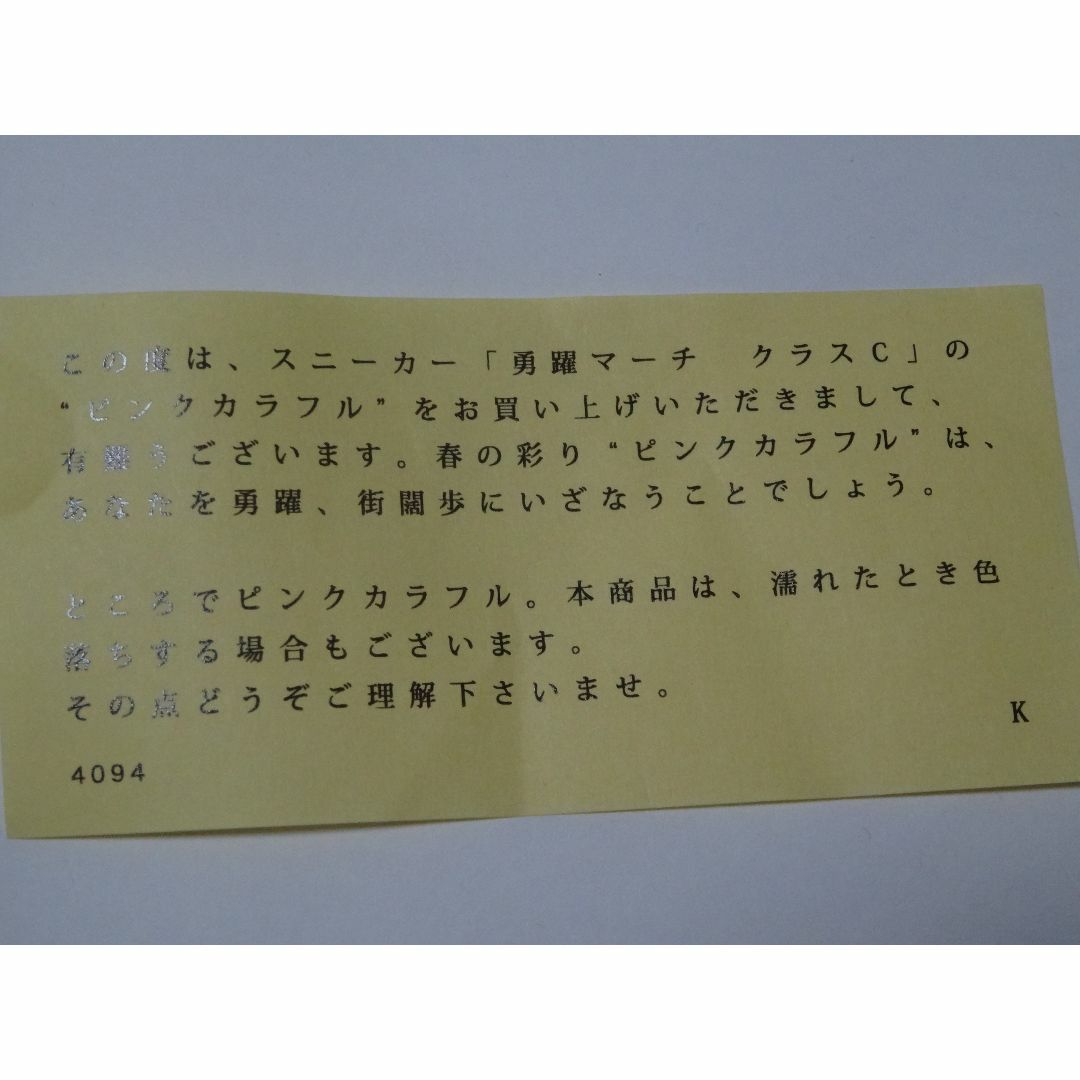 この度は、スニーカー「勇躍マーチ　クラスC」の
“ピンクカラフル”をお買い上げいただきまして、
有難うございます。春の彩り“ピンクカラフル”は、
あなたを勇躍、街闊歩にいざなうことでしょう。
ところでピンクカラフル。本商品は、濡れたとき色
落ちする場合もございます。
その点どうぞご理解下さいませ。
K
4094